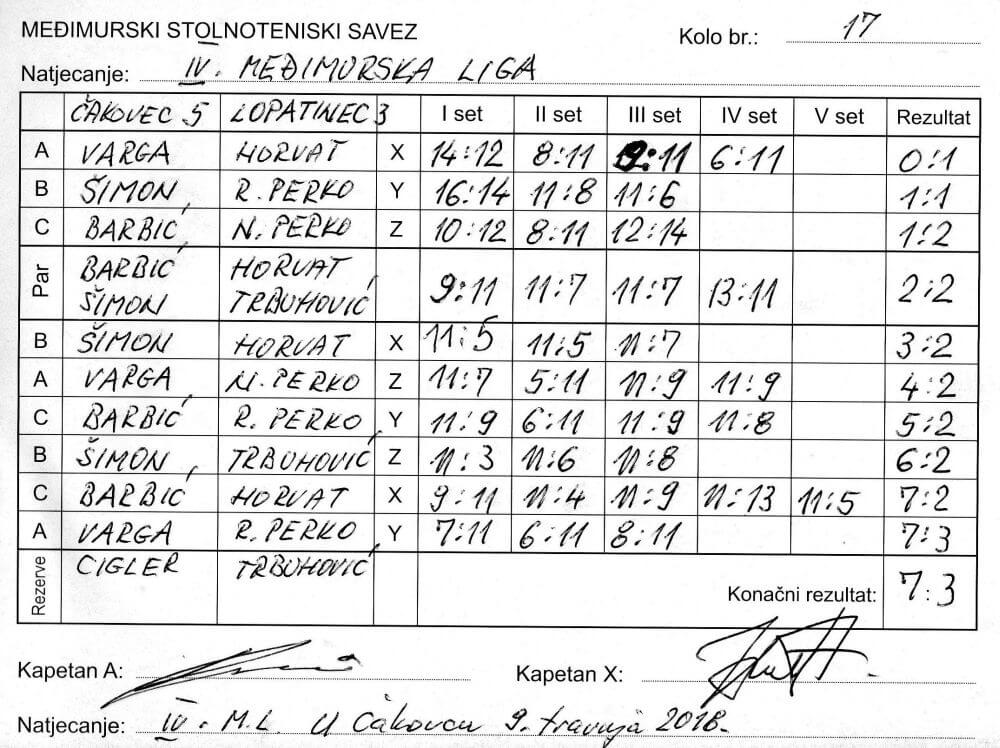 MEĐIMURSKI STOLNOTENISKI SAVEZ Kolo br.: 17
Natjecanje: IV. MEĐIMURSKA LIGA
ČAKOVEC 5 LOPATINEC 3 I set II set III set IV set V set Rezultat
A VARGA HORVAT X 14:12 8:11 9:11 6:11 0:1
B ŠIMON R. PERKO Y 16:14 11:8 11:6 1:1
C BARBIĆ N. PERKO Z 10:12 8:11 12:14 1:2
Par BARBIĆ ŠIMON HORVAT TRBUHOVIĆ 9:11 11:7 11:7 13:11 2:2
B ŠIMON HORVAT X 11:5 11:5 11:7 3:2
A VARGA N. PERKO Z 11:7 5:11 11:9 11:9 4:2
C BARBIĆ R. PERKO Y 11:9 6:11 11:9 11:8 5:2
B ŠIMON TRBUHOVIĆ Z 11:3 11:6 11:8 6:2
C BARBIĆ HORVAT X 9:11 11:4 11:9 11:13 11:5 7:2
A VARGA R. PERKO Y 7:11 6:11 8:11 7:3
Rezerve CIGLER TRBUHOVIĆ
Konačni rezultat: 7:3
Kapetan A: Kapetan X:
Natjecanje: IV. M.L. U Čakovcu 9. travnja 2018.